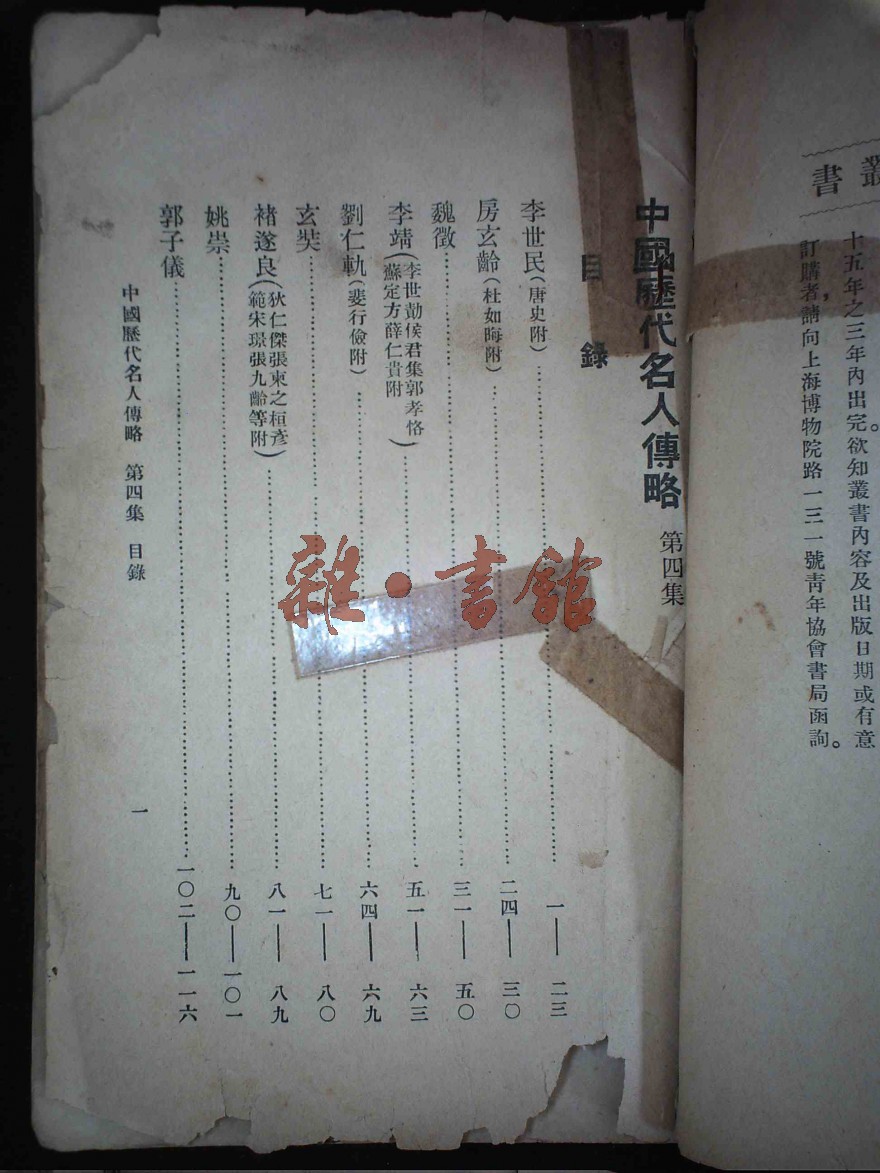 叢
書
十五年之三年內出完。欲知叢書內容及出版日期或有意
訂購者,請向上海博物院路一三一號青年協會書局函詢。
中國歷代名人傳略 第四集
目 錄
李世民(唐史附)……一——二三
房玄齡(杜如晦附)……二四——三〇
魏徵……三一——五〇
李靖(李世勣侯君集郭孝恪蘇定方薛仁貴附)……五一——六三
劉仁軌(裴行儉附)……六四——六九
玄奘……七一——八〇
褚遂良(狄仁傑張柬之桓彥範宋璟張九齡等附)……八一——八九
姚崇……九〇——一〇一
郭子儀……一〇二——一一六
中國歷代名人傳略 第四集 目錄
一
雜·書館